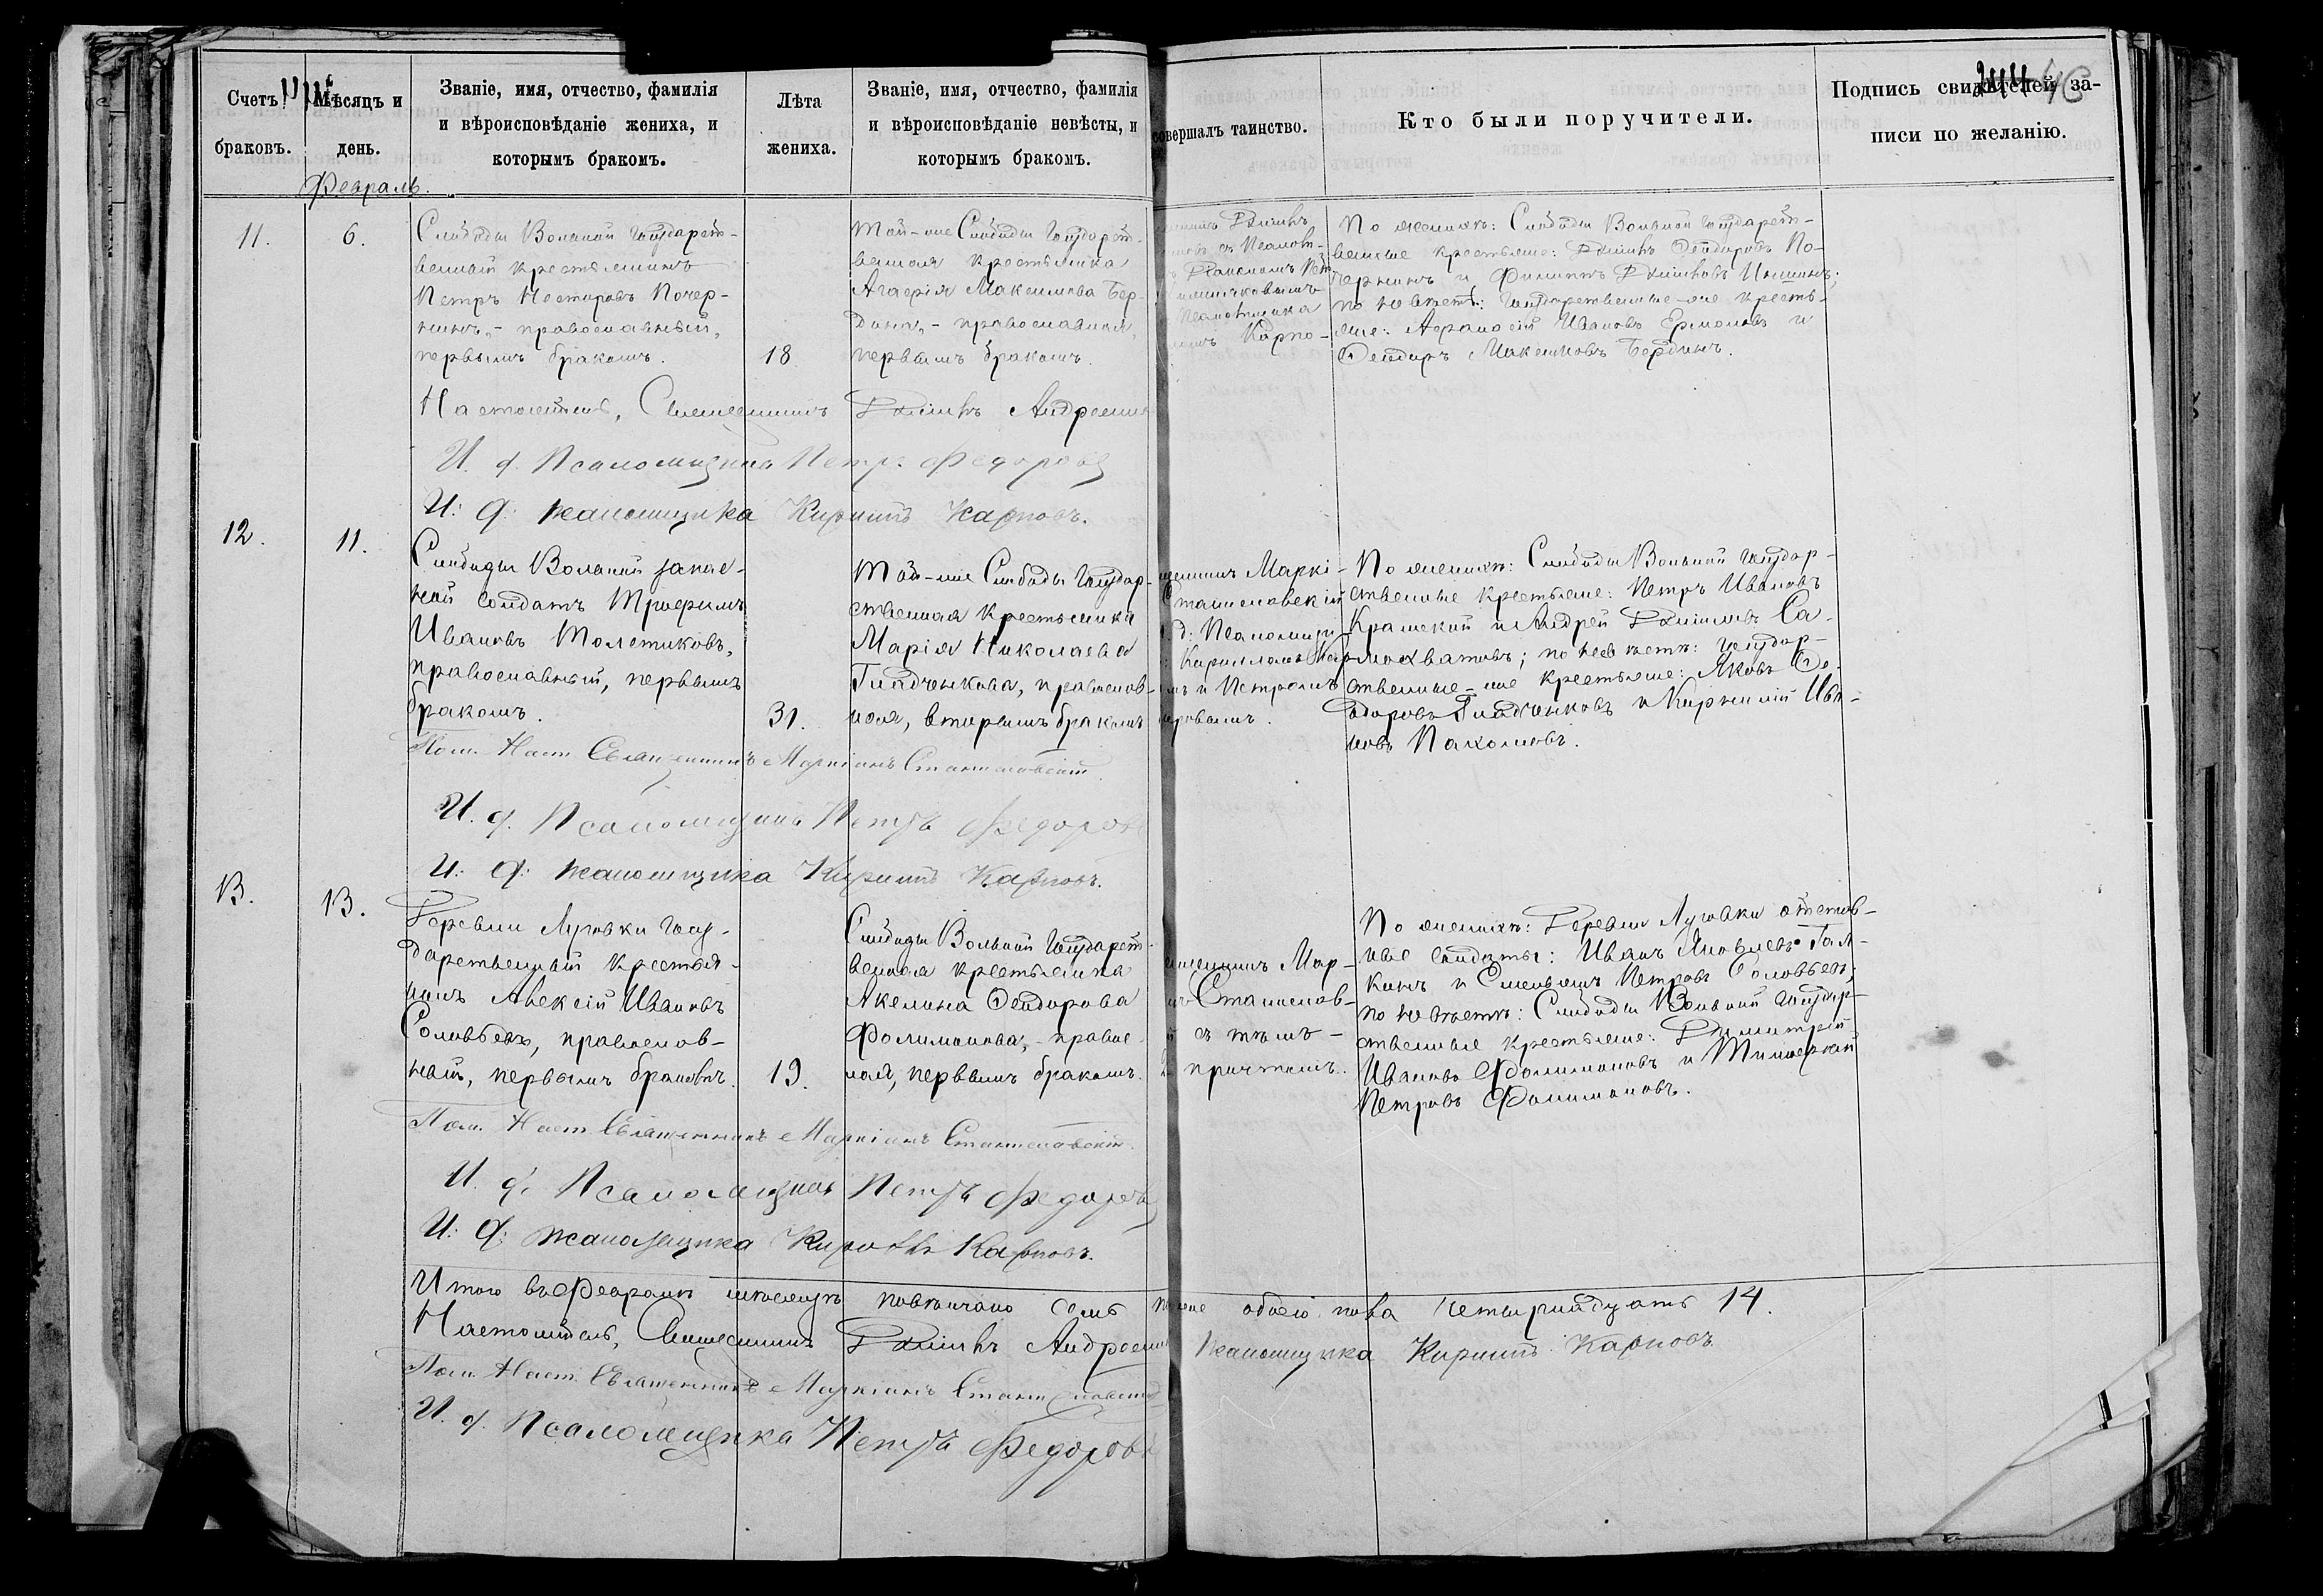 Счетъ браковъ.
Мѣсяцъ и день.
Званіе, имя, отчество, фамилія и вѣроисповѣданіе жениха, и которымъ бракомъ.
Лѣта жениха.
Званіе, имя, отчество, фамилія и вѣроисповѣданіе невѣсты, и которымъ бракомъ.
совершалъ таинство.
Кто были поручители.
Подпись свидѣтелей записи по желанію.
Февраль.
11.
6.
Слободы Вольной государст-
венный крестьянинъ
Петръ Несторовъ Почер-
нинъ, - православный,
первымъ бракомъ.
18
Той-же Слободы государст-
венная крестьянка
Максимова Бер-
дина, - православная,
первымъ бракомъ.
Карпо-
По женихѣ: Слободы Вольной государст-
венные крестьяне: Ѳеодоровъ По-
чернинъ и Филиппъ
по невѣстѣ: государственные-же кресть-
яне: Аѳанасій Ивановъ Ермоловъ и
Ѳеодоръ Максимовъ Бердинъ.
Настоятель, Священникъ Андреев
И. д. Псаломщика Петръ Федоровъ
И: д: псаломщика Кириллъ Карповъ.
12.
11.
Слободы Вольной запас-
ной солдатъ Трофимъ
Ивановъ Толстиковъ,
православный, первымъ
бракомъ.
31.
Той-же Слободы государ-
ственная крестьянка
Марія Николаева
Гладченкова, православ-
ная, вторымъ бракомъ
щенникъ Маркі-
Станиславскій
д: Псаломщи-
Кирилломъ Кар-
и Петромъ
доровымъ.
По женихѣ: Слободы Вольной государ-
ственные крестьяне: Петръ Ивановъ
и Андрей Са-
мохватовъ; по невѣстѣ: государ-
ственные-же крестьяне: Яковъ Ѳе-
одоровъ Гладченковъ и Ива-
новъ Пахомовъ.
Пом. Наст. Священникъ Маркіанъ Станиславскій
И. д. Псаломщика Петръ Федоровъ
И: д: псаломщика Кириллъ Карповъ.
13.
13.
Деревни Луговки госу-
дарственный крестья-
нинъ Алексій Ивановъ
Соловьевъ, православ-
ный, первымъ бракомъ.
19.
Слободы Вольной государст-
венная крестьянка
Акелина Ѳеодорова
Фолимонова, - православ-
ная, первымъ бракомъ.
щенникъ Мар-
Станислав-
съ тѣмъ-
причтомъ.
По женихѣ: Деревни Луговки отстав-
ные солдаты: Иванъ Яковлевъ Гал-
кинъ и Петровъ Соловьевъ;
по невѣстѣ: Слободы Вольной государ-
ственные крестьяне: Димитрій
Ивановъ Фолимоновъ и Тимофей
Петровъ Фолимоновъ.
Пом. Наст. Священникъ Маркіанъ Станиславскій
И. д. Псаломщика Петръ Федоровъ
И: д: псаломщика Кириллъ Карповъ.
Итого въ Февралѣ мѣсяцѣ повѣнчано семь обоего пола четырнадцать 14.
Настоятель, Священникъ Андреев
псаломщика Кириллъ Карповъ.
Пом. Наст. Священникъ Маркіанъ Станиславскій
И. д. Псаломщика Петръ Федоровъ